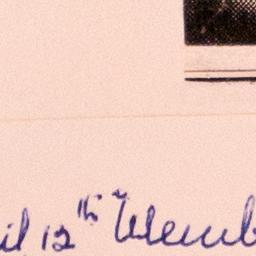 il 12th Wemb